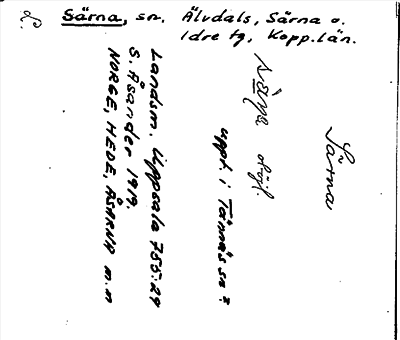 L.
Särna, sn. Älvdals, Särna o.
Idre tg, Kopp.län.
Särna
obj.
uppt. i Tännäs sn:
Landsm. Uppsala 755:29
S. Åsander 1919.
NORGE, HEDE, ÅSARNA m.m